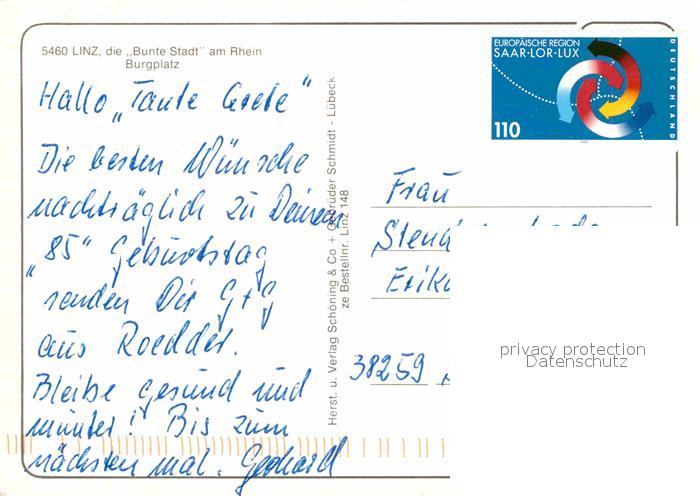 5460 LINZ, die „Bunte Stadt" am Rhein
Burgplatz
Hallo „Tante Grete"
Die besten Wünsche
nachträglich zu Deinem
„85" Geburtstag
senden Dir G + G
aus Roedder.
Bleibe gesund und
munter! Bis zum
nächsten mal. Gerhard
Herst. u. Verlag Schöning & Co + Gebrüder Schmidt - Lübeck
ze Bestellnr. Linz 148
EUROPÄISCHE REGION
SAAR·LOR·LUX
DEUTSCHLAND
110
Frau
Erika
38259
privacy protection
Datenschutz